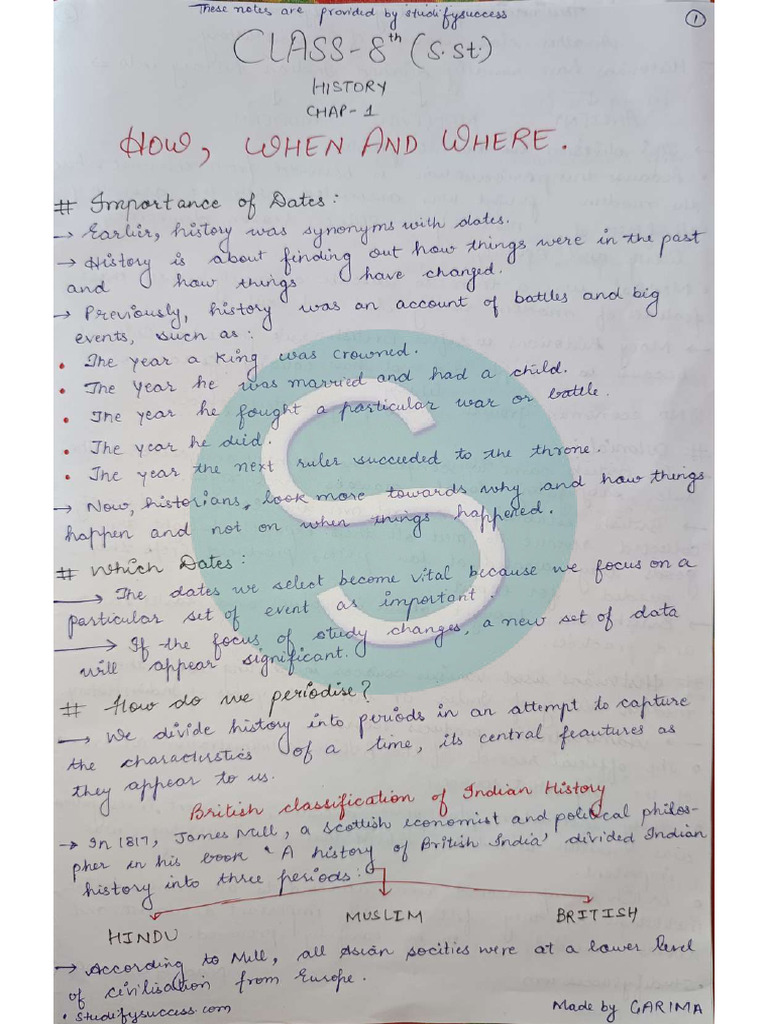 These notes are provided by studifysuccess
1
CLASS-8th (S.St.)
HISTORY
CHAP-1
HOW, WHEN AND WHERE.
# Importance of Dates:
→ Earlier, history was synonyms with dates.
→ History is about finding out how things were in the past
and how things have changed.
→ Previously, history was an account of battles and big
events, such as:
• The year a King was crowned.
• The Year he was married and had a child.
• The year he fought a particular war or battle.
• The year he died.
• The year the next ruler succeeded to the throne.
→ Now, historians, look more towards why and how things
happen and not on when things happened.
# Which Dates:
→ The dates we select become vital because we focus on a
particular set of event as important.
→ If the focus of study changes, a new set of data
will appear significant.
# How do we periodise?
→ We divide history into periods in an attempt to capture
the characteristics of a time, its central feautures as
they appear to us.
British classification of Indian History
→ In 1817, James Mill, a Scottish economist and political philos-
pher in his book 'A history of British India' divided Indian
history into three periods:
HINDU MUSLIM BRITISH
→ According to Mill, all Asian socities were at a lower level
of civilisation from Europe.
• studifysuccess.com Made by GARIMA